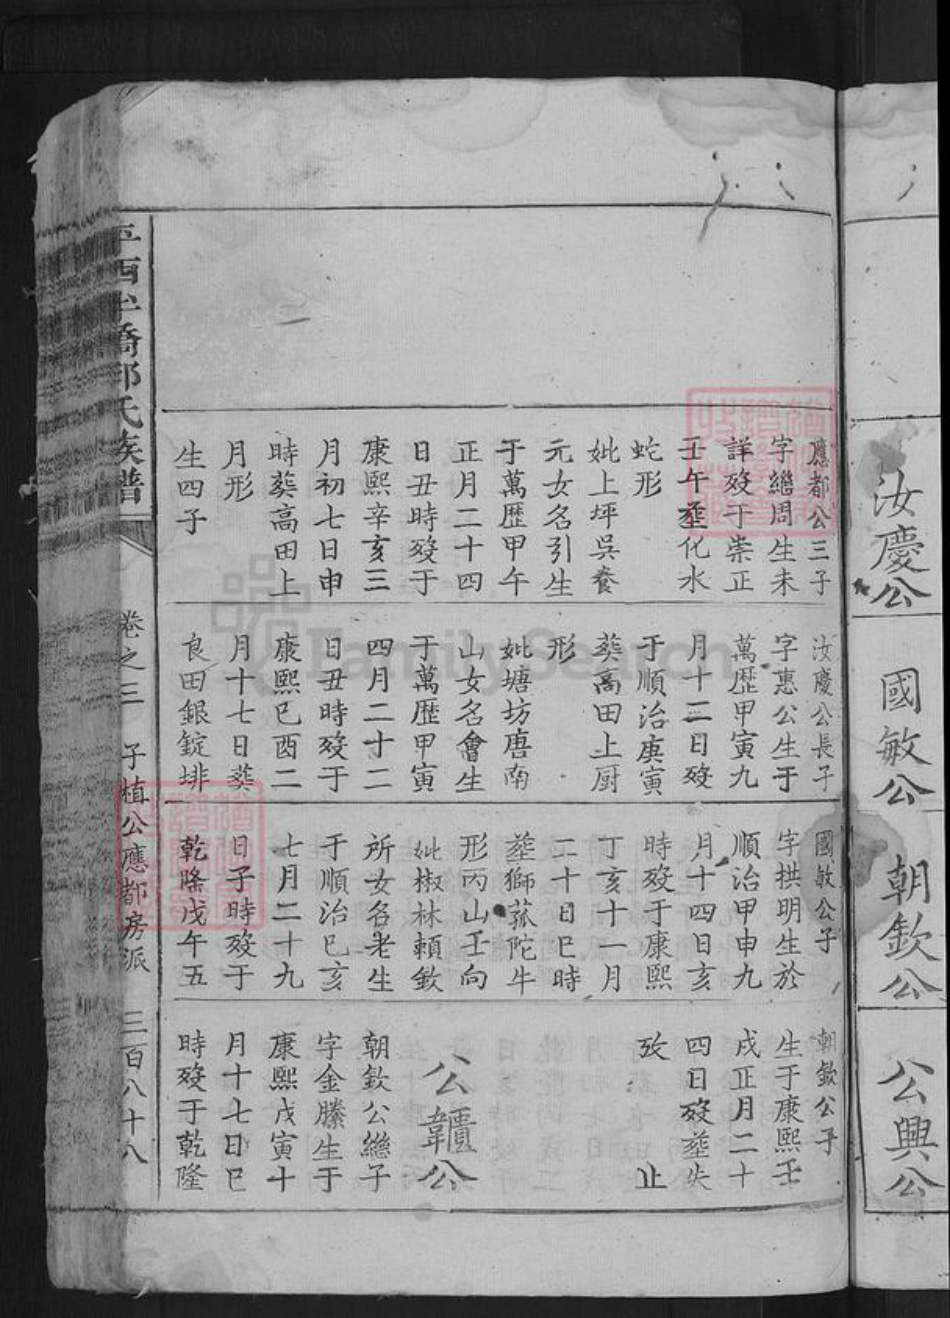 汝慶公
國敏公
朝欽公
公興公
應都公三子
字繼周生未
詳歿于崇正
壬午塟化水
蛇形
妣上坪吳養
元女名引生
于萬歷甲午
正月二十四
日丑時歿于
康熙辛亥三
月初七日申
時葬高田上
月形
生四子
汝慶公長子
字惠公生于
萬歷甲寅九
月十二日歿
于順治庚寅
葬高田上厨
形
妣塘坊唐南
山女名會生
于萬歷甲寅
四月二十二
日丑時歿于
康熙己酉二
月十七日葬
良田銀錠排
國敏公子
字拱明生於
順治甲申九
月十四日亥
時歿于康熙
丁亥十一月
二十日巳時
塟獅菰陀牛
形丙山壬向
妣椒林賴欽
所女名老生
于順治己亥
七月二十九
日子時歿于
乾隆戊午五
朝欽公子
生于康熙壬
戌正月二十
四日歿塟失
攷 止
公韥公
朝欽公繼子
字金縢生于
康熙戊寅十
月十七日巳
時歿于乾隆
氏族譜
卷之三 子植公應都房派 三百八十八
FamilySearch